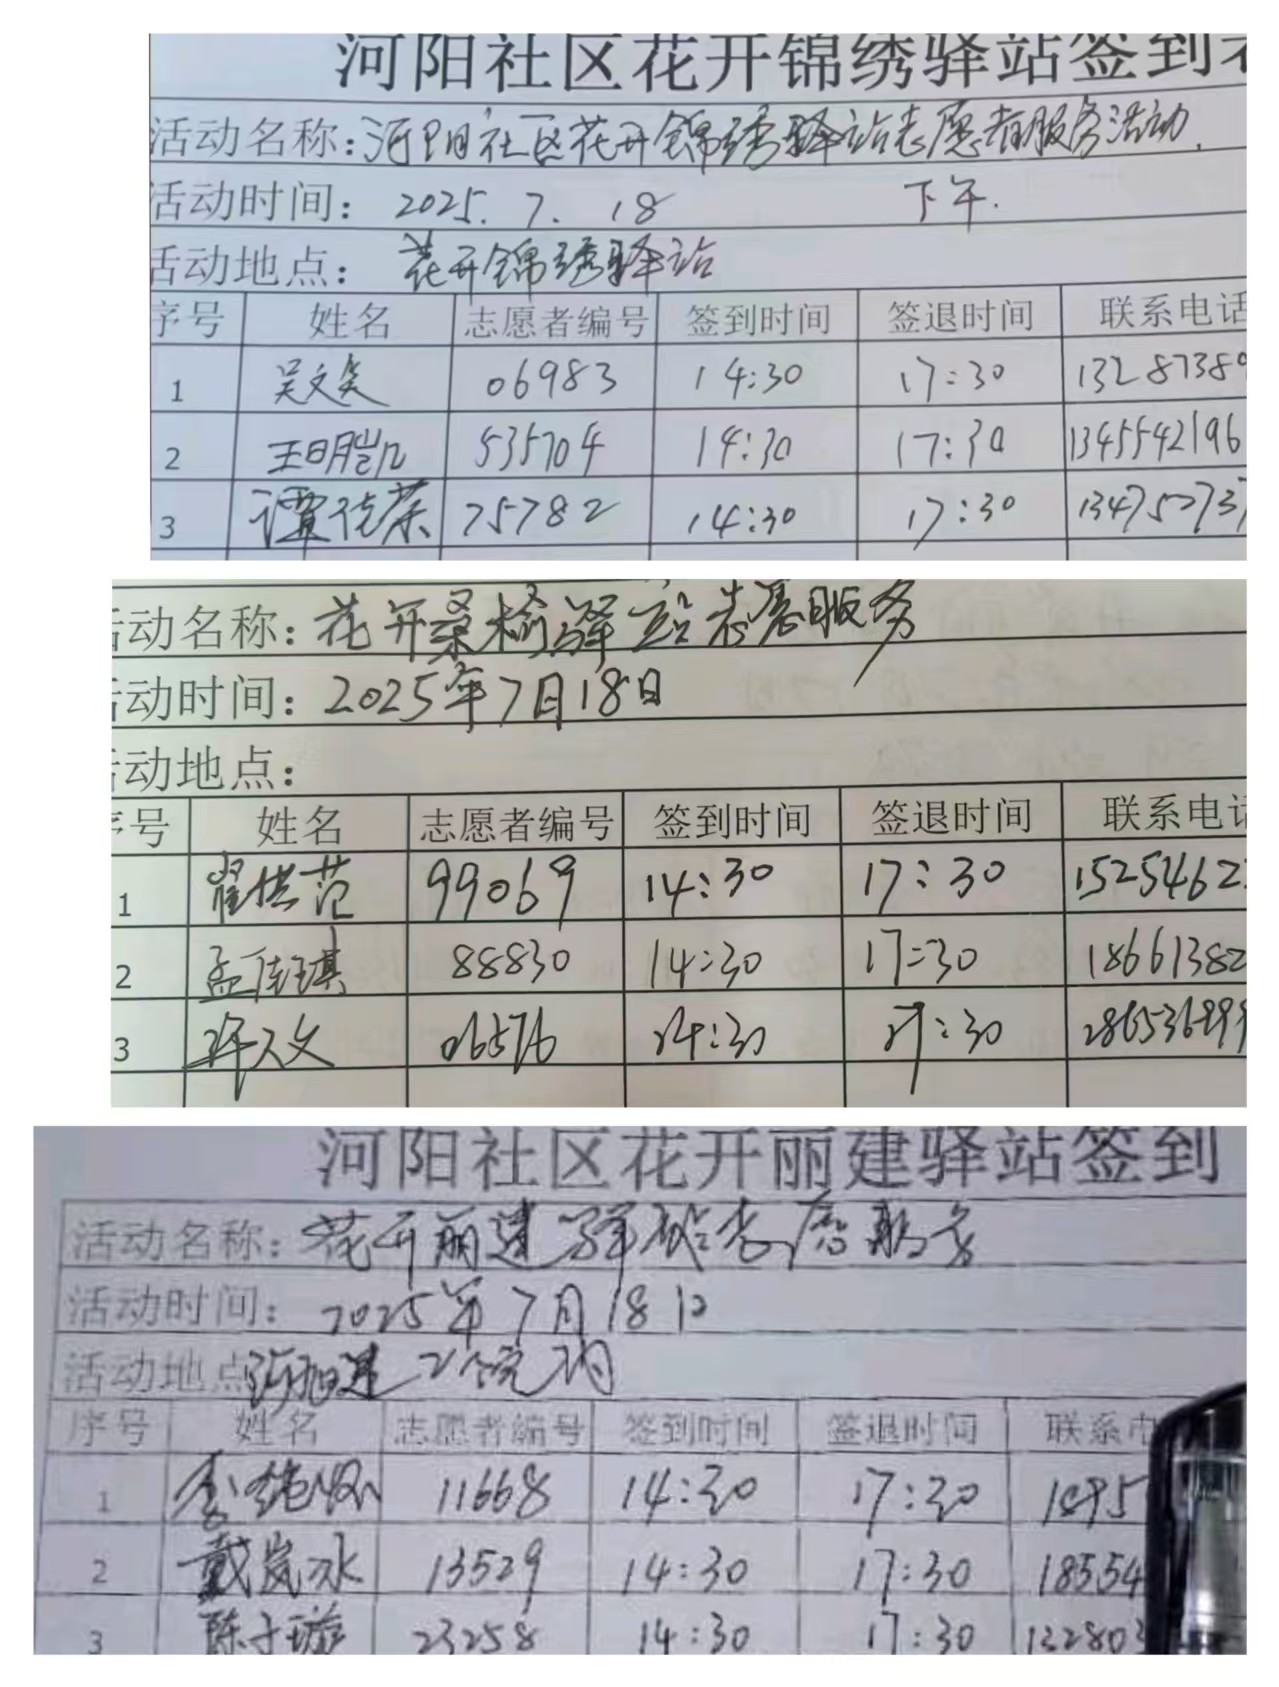 河阳社区花开锦绣驿站签到
活动名称：河阳社区花开锦绣驿站志愿者服务活动.
活动时间： 2025. 7. 18 下午.
活动地点： 花开锦绣驿站
序号 姓名 志愿者编号 签到时间 签退时间 联系电话
1 吴文奂 06983 14:30 17:30 13287389
2 535704 14:30 17:30 1345542196
3 谭德荣 75782 14:30 17:30 134752737
活动名称：花开桑榆驿站志愿服务
活动时间：2025年7月18日
活动地点：
序号 姓名 志愿者编号 签到时间 签退时间 联系电话
1 翟洪范 99069 14:30 17:30 15254622
2 孟佳琪 88830 14:30 17:30 18661382
3 许文 06576 14:30 17:30
河阳社区花开丽建驿站签到
活动名称：花开丽建驿站志愿服务
活动时间： 2025年7月18日
活动地点
序号 姓名 志愿者编号 签到时间 签退时间 联系电
1 11668 14:30 17:30 1895
2 戴岚冰 13529 14:30 17:30 18554
3 陈子璇 23258 14:30 17:30 132803